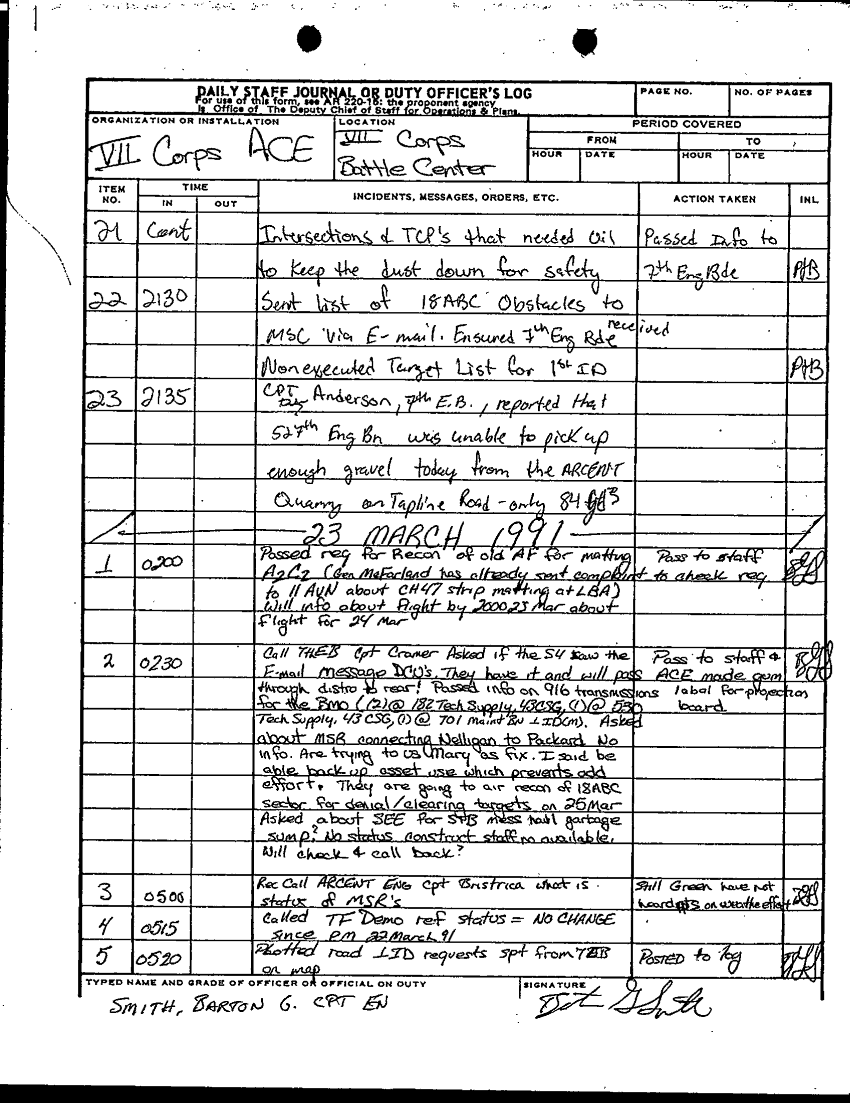 DAILY STAFF JOURNAL OR DUTY OFFICER'S LOG
For use of this form, see AR 220-15; the proponent agency
is Office of The Deputy Chief of Staff for Operations & Plans.
PAGE NO.
NO. OF PAGES
ORGANIZATION OR INSTALLATION
VII Corps ACE
LOCATION
VII Corps
Battle Center
PERIOD COVERED
FROM
TO
HOUR
DATE
HOUR
DATE
ITEM NO.
TIME
IN
OUT
INCIDENTS, MESSAGES, ORDERS, ETC.
ACTION TAKEN
INL
21 Cont Intersections & TCP's that needed Oil Passed Info to
to keep the dust down for safety 7th Eng Bde PJB
22 2130 Sent list of 18ABC Obstacles to
MSC via E-mail. Ensured 7th Eng Bde received
Nonexecuted Target List for 1st ID PJB
23 2135 CPT Anderson, 7th E.B., reported that
527th Eng Bn was unable to pick up
enough gravel today from the ARCENT
Quarry on Tapline Road - only 84 yd3
23 MARCH 1991
1 0200 Passed req for Recon of old AF for matting Pass to staff
A2C2 (Gen McFarland has already sent complaint to check req
to 11 AVN about CH47 strip matting at LBA)
Will info about flight by 2000, 23 Mar about
flight for 24 Mar
2 0230 Call THEB Cpt Cramer Asked if the S4 saw the Pass to staff &
E-mail message DCU's. They have it and will pass ACE made gum
through distro to rear! Passed info on 916 transmissions label for projection
for the BMO (12)@ 182 Tech Supply, 43CSG, (1)@ 530 board.
Tech Supply, 43 CSG, (1)@ 701 maint BN 1ID(M). Asked
about MSR connecting Nelligan to Packard No
info. Are trying to us Mary as fix. I said be
able back up asset use which prevents add
effort. They are going to air recon of 18ABC
sector for denial/clearing targets on 25 Mar
Asked about SEE for STB mess hall garbage
sump? No status, construct staff no available.
Will check & call back?
3 0500 Rec Call ARCENT ENG Cpt Bristrica what is Still Green have not
status of MSR's heard on weather effort
4 0515 Called TF Demo ref status = NO CHANGE
since PM 22 March 91
5 0520 Plotted road 1ID requests spt from 7EB POSTED to log
on map
TYPED NAME AND GRADE OF OFFICER OR OFFICIAL ON DUTY
SMITH, BARTON G. CPT EN
SIGNATURE